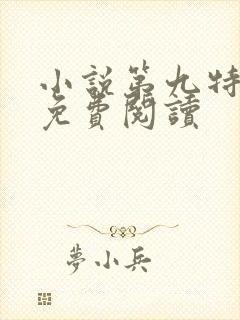 小說第九特
免費閱讀
夢小兵